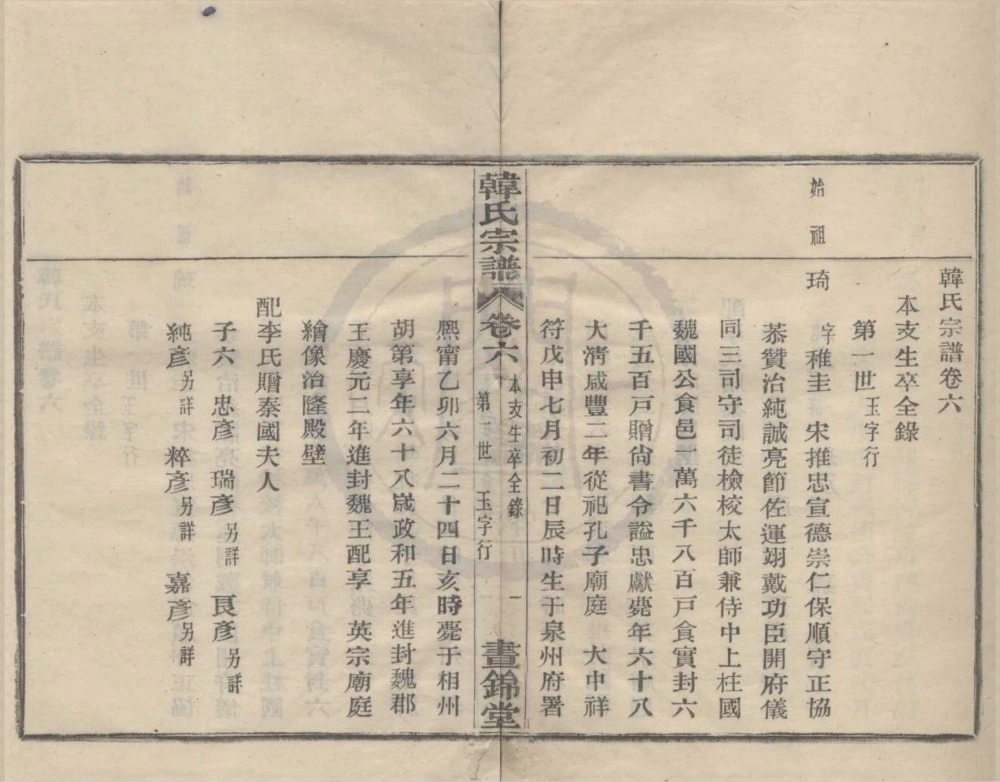 韓氏宗譜卷六
本支生卒全錄
第一世 玉字行
始祖
琦 字稚圭 宋推忠宣德崇仁保順守正協
恭贊治純誠亮節佐運翊戴功臣開府儀
同三司守司徒檢校太師兼侍中上柱國
魏國公食邑壹萬六千八百戸食實封六
千五百戸贈尙書令謚忠獻薨年六十八
大清咸豐二年從祀孔子廟庭 大中祥
符戊申七月初二日辰時生于泉州府署
韓氏宗譜 卷六 本支生卒全錄 第一世 玉字行 一 晝錦堂
熙甯乙卯六月二十四日亥時薨于相州
胡第享年六十八歲政和五年進封魏郡
王慶元二年進封魏王配享 英宗廟庭
繪像治隆殿壁
配李氏贈秦國夫人
子六 忠彥 瑞彥另詳 良彥另詳
純彥另詳 粹彥另詳 嘉彥另詳